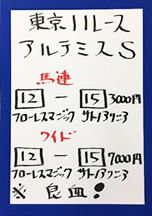 東京11レース
アルテミスS
馬連
12 ー 15 3000円
フローレスマジック サトノアリシア
ワイド
12 ー 15 7000円
フローレスマジック サトノアリシア
※ 良血!